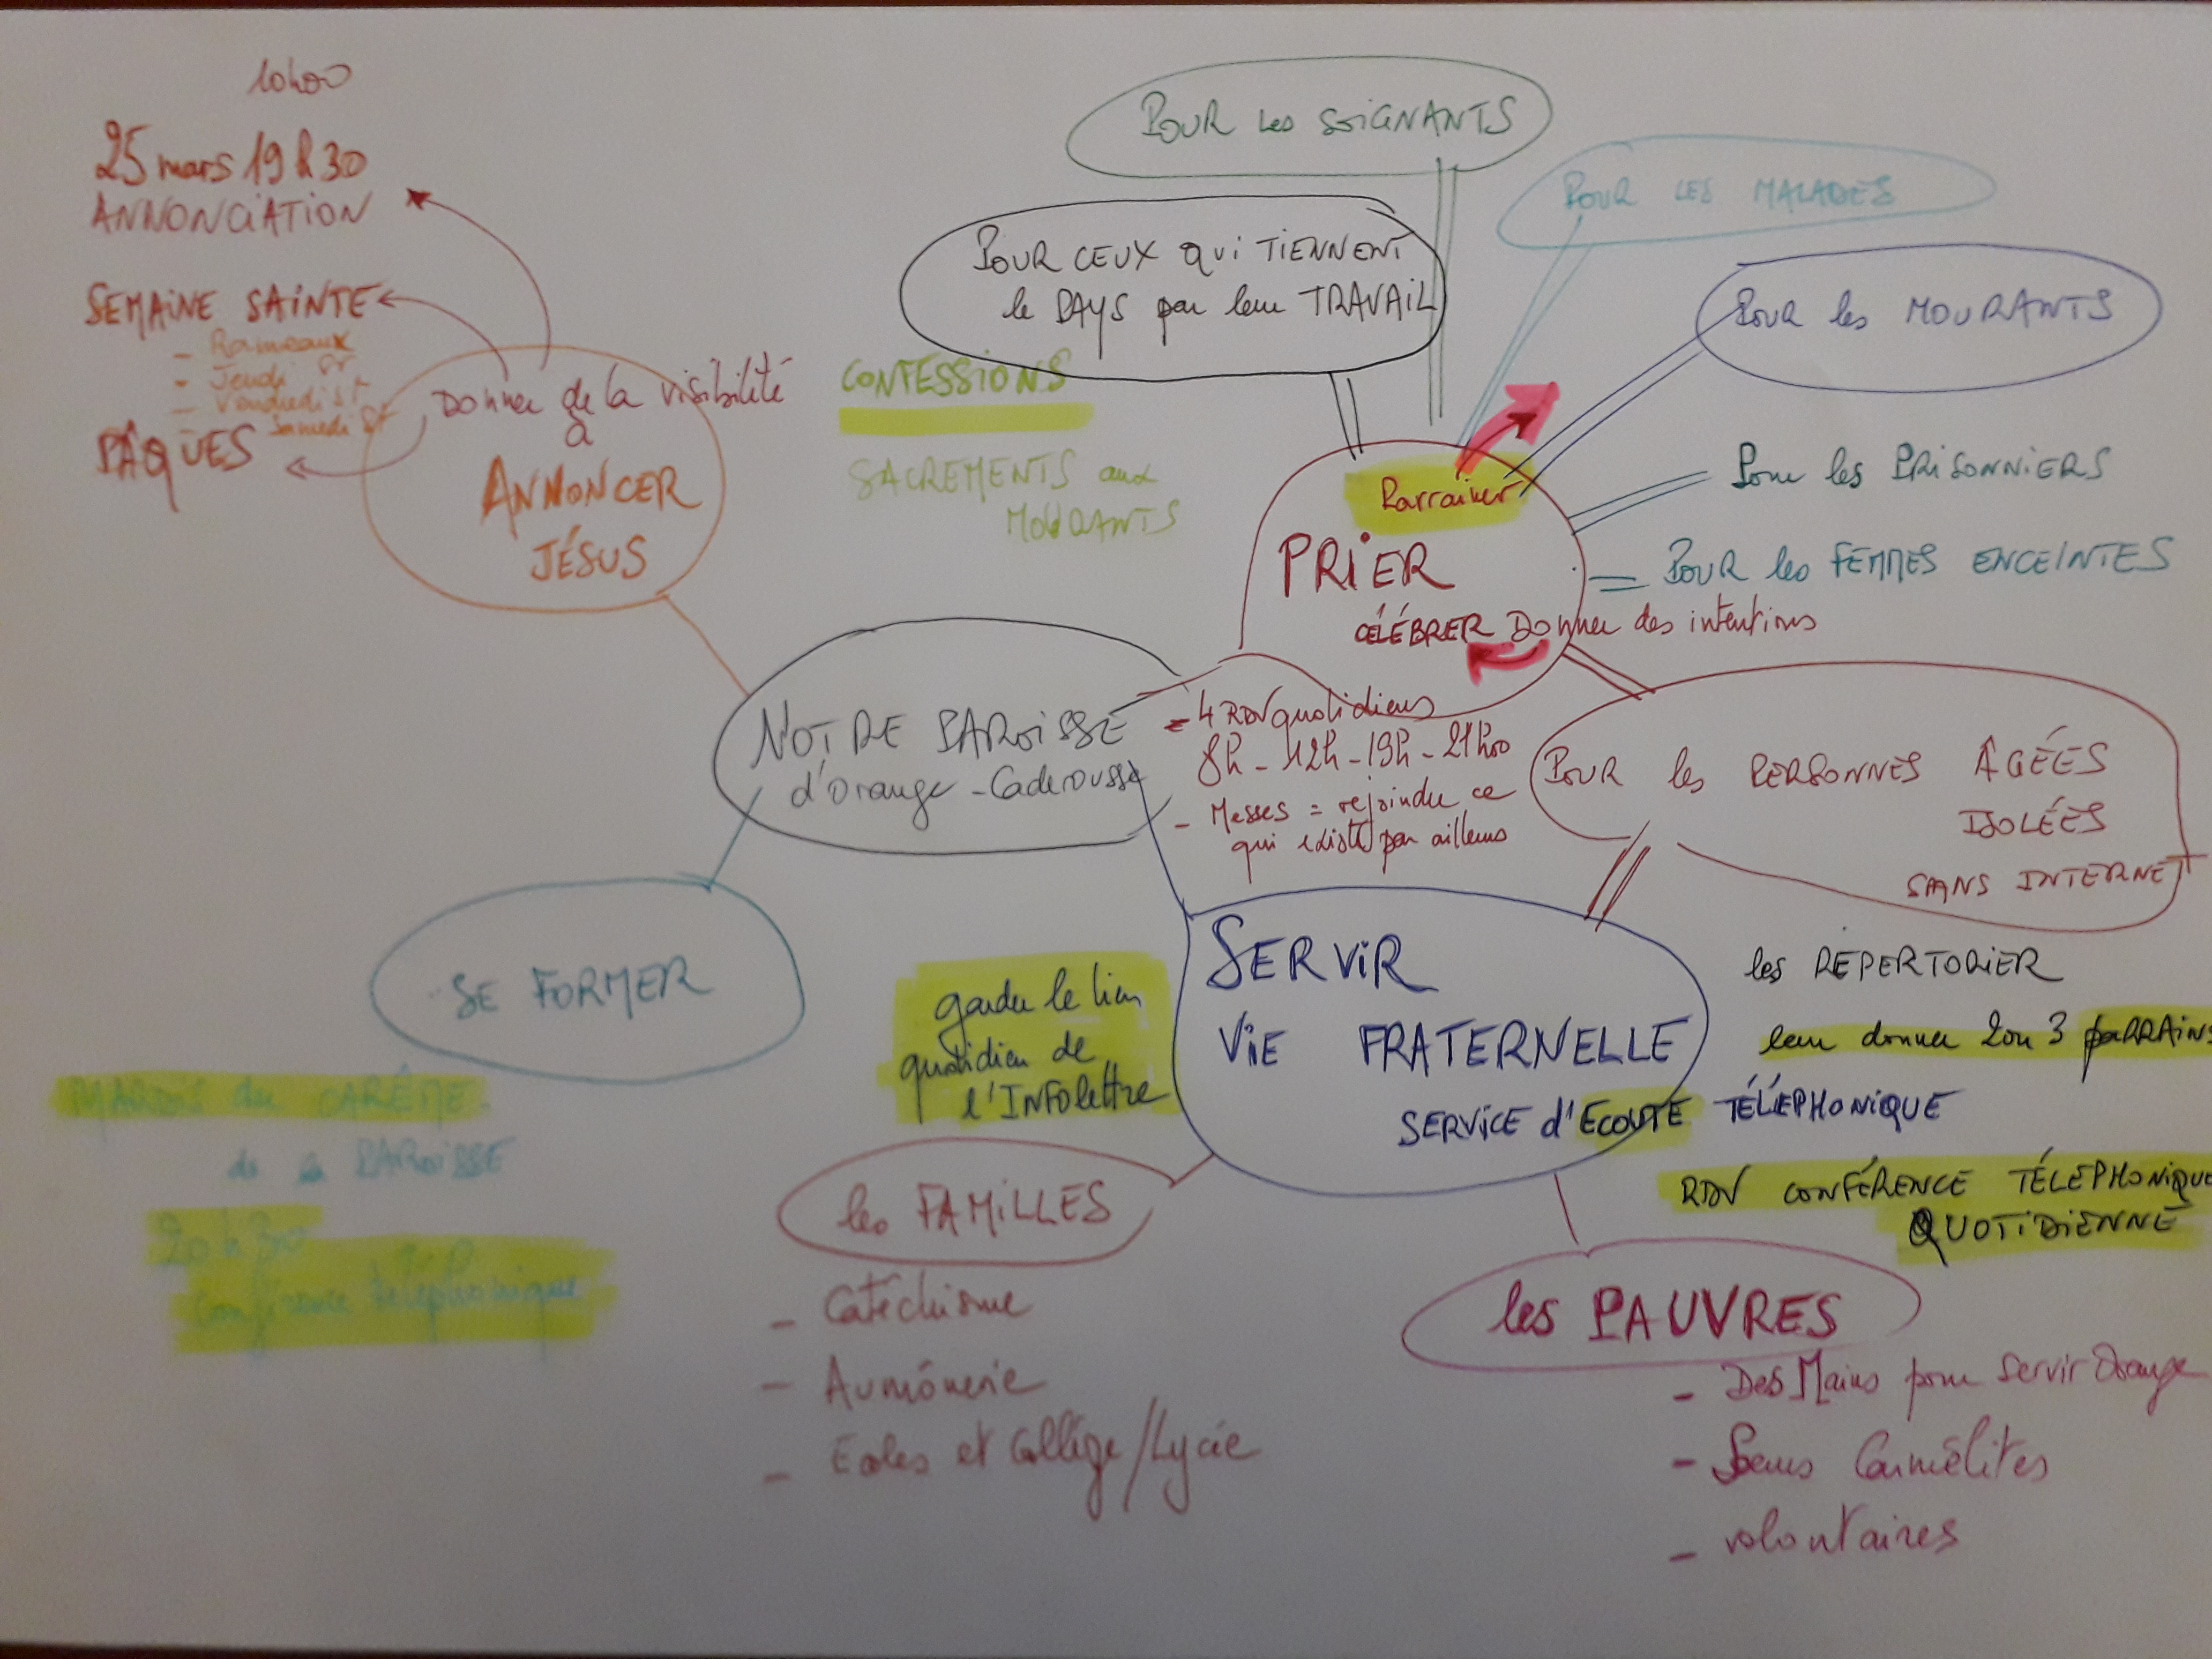 10h00
25 mars 19h30
ANNONCIATION
SEMAINE SAINTE
- Rameaux
- Jeudi St
- Vendredi St
Samedi St
PÂQUES
Donner de la visibilité
à
ANNONCER
JÉSUS
CONFESSIONS
SACREMENTS aux
MOURANTS
POUR les SOIGNANTS
POUR LES MALADES
POUR CEUX QUI TIENNENT
le PAYS par leur TRAVAIL
Pour les MOURANTS
Parrainer
Pour les PRISONNIERS
PRIER
POUR les FEMMES ENCEINTES
CÉLÉBRER Donner des intentions
NOTRE PAROISSE
d'Orange - Caderousse
- 4 RDV quotidiens
8h - 12h - 19h - 21h00
- Messes = rejoindre ce
qui existe par ailleurs
POUR les PERSONNES ÂGÉES
ISOLÉES
SANS INTERNET
SE FORMER
MARDIS du CARÊME
de la PAROISSE
20h30
Conférence téléphonique
garder le lien
quotidien de
l'INFOlettre
SERVIR
VIE FRATERNELLE
SERVICE d'ECOUTE TÉLÉPHONIQUE
les REPERTORIER
leur donner 2 ou 3 PARRAINS
RDV CONFÉRENCE TÉLÉPHONIQUE
QUOTIDIENNE
les FAMILLES
- Catéchisme
- Aumônerie
- Ecoles et Collège/Lycée
les PAUVRES
- Des Mains pour Servir Orange
- Sœurs Carmélites
- volontaires